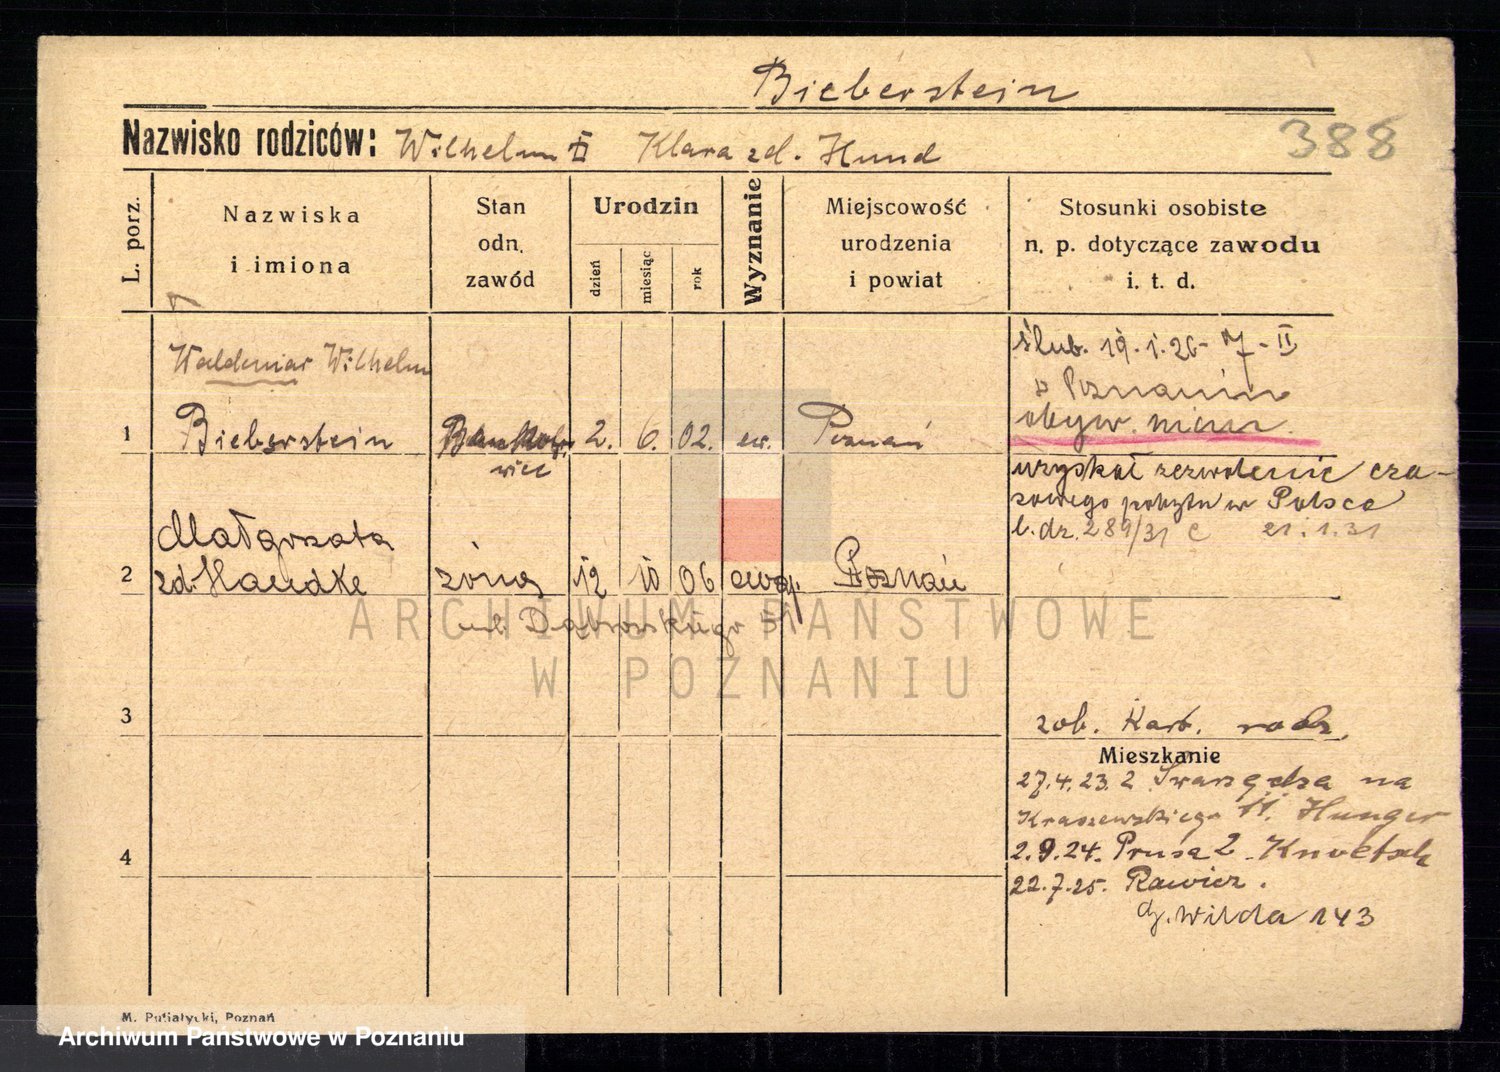 Bieberstein
Nazwisko rodziców: Wilhelm Klara zd. Hund
388
L. porz.
Nazwiska
i imiona
Stan
odn.
zawód
Urodzin
dzień
miesiąc
rok
Wyznanie
Miejscowość
urodzenia
i powiat
Stosunki osobiste
n. p. dotyczące zawodu
i. t. d.
Waldemar Wilhelm
1 Bieberstein 2. 6. 02. ew. Poznań
wiec
ślub. 19.1.26
w Poznaniu
obyw. niem.
uzyskał zezwolenie cza-
sowego pobytu w Polsce
l. dz. 289/31 C 21.1.31
Małgorzata
2 zd. Handke żona 12 10 06 ewg. Poznań
ul. Dąbrowskiego 51
ARCHIWUM PAŃSTWOWE
W POZNANIU
3
zob. Kart. rodz.
Mieszkanie
27.4.23. z Swarzędza na
Kraszewskiego 11. Hunger
4
2.9.24. Prusa 2
22.7.25. Rawicz.
G. Wilda 143
M. Putiatycki, Poznań
Archiwum Państwowe w Poznaniu